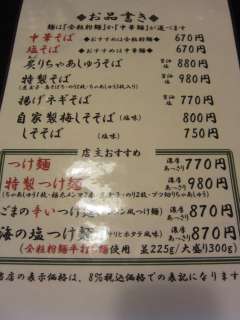 ◆お品書き◆
麺は『全粒粉麺』か『中華麺』が選べます
中華そば ◆おすすめは全粒粉麺◆ 670円
塩そば ◆おすすめは中華麺◆ 670円
炙りちゃあしゅうそば 醤油 塩 880円
特製そば 醤油 塩 980円
揚げネギそば 醤油 塩 770円
自家製梅しそそば (塩味) 800円
しそそば (塩味) 750円
店主おすすめ
つけ麺 濃厚 あっさり 770円
特製つけ麺 濃厚 あっさり 980円
ごまの辛いつけ麺 濃厚 あっさり 870円
海の塩つけ麺 濃厚 あっさり 870円
(全粒粉麺平打ち麺使用 並225g/大盛り300g)
当店の表示価格は、8%税込価格での表記になります